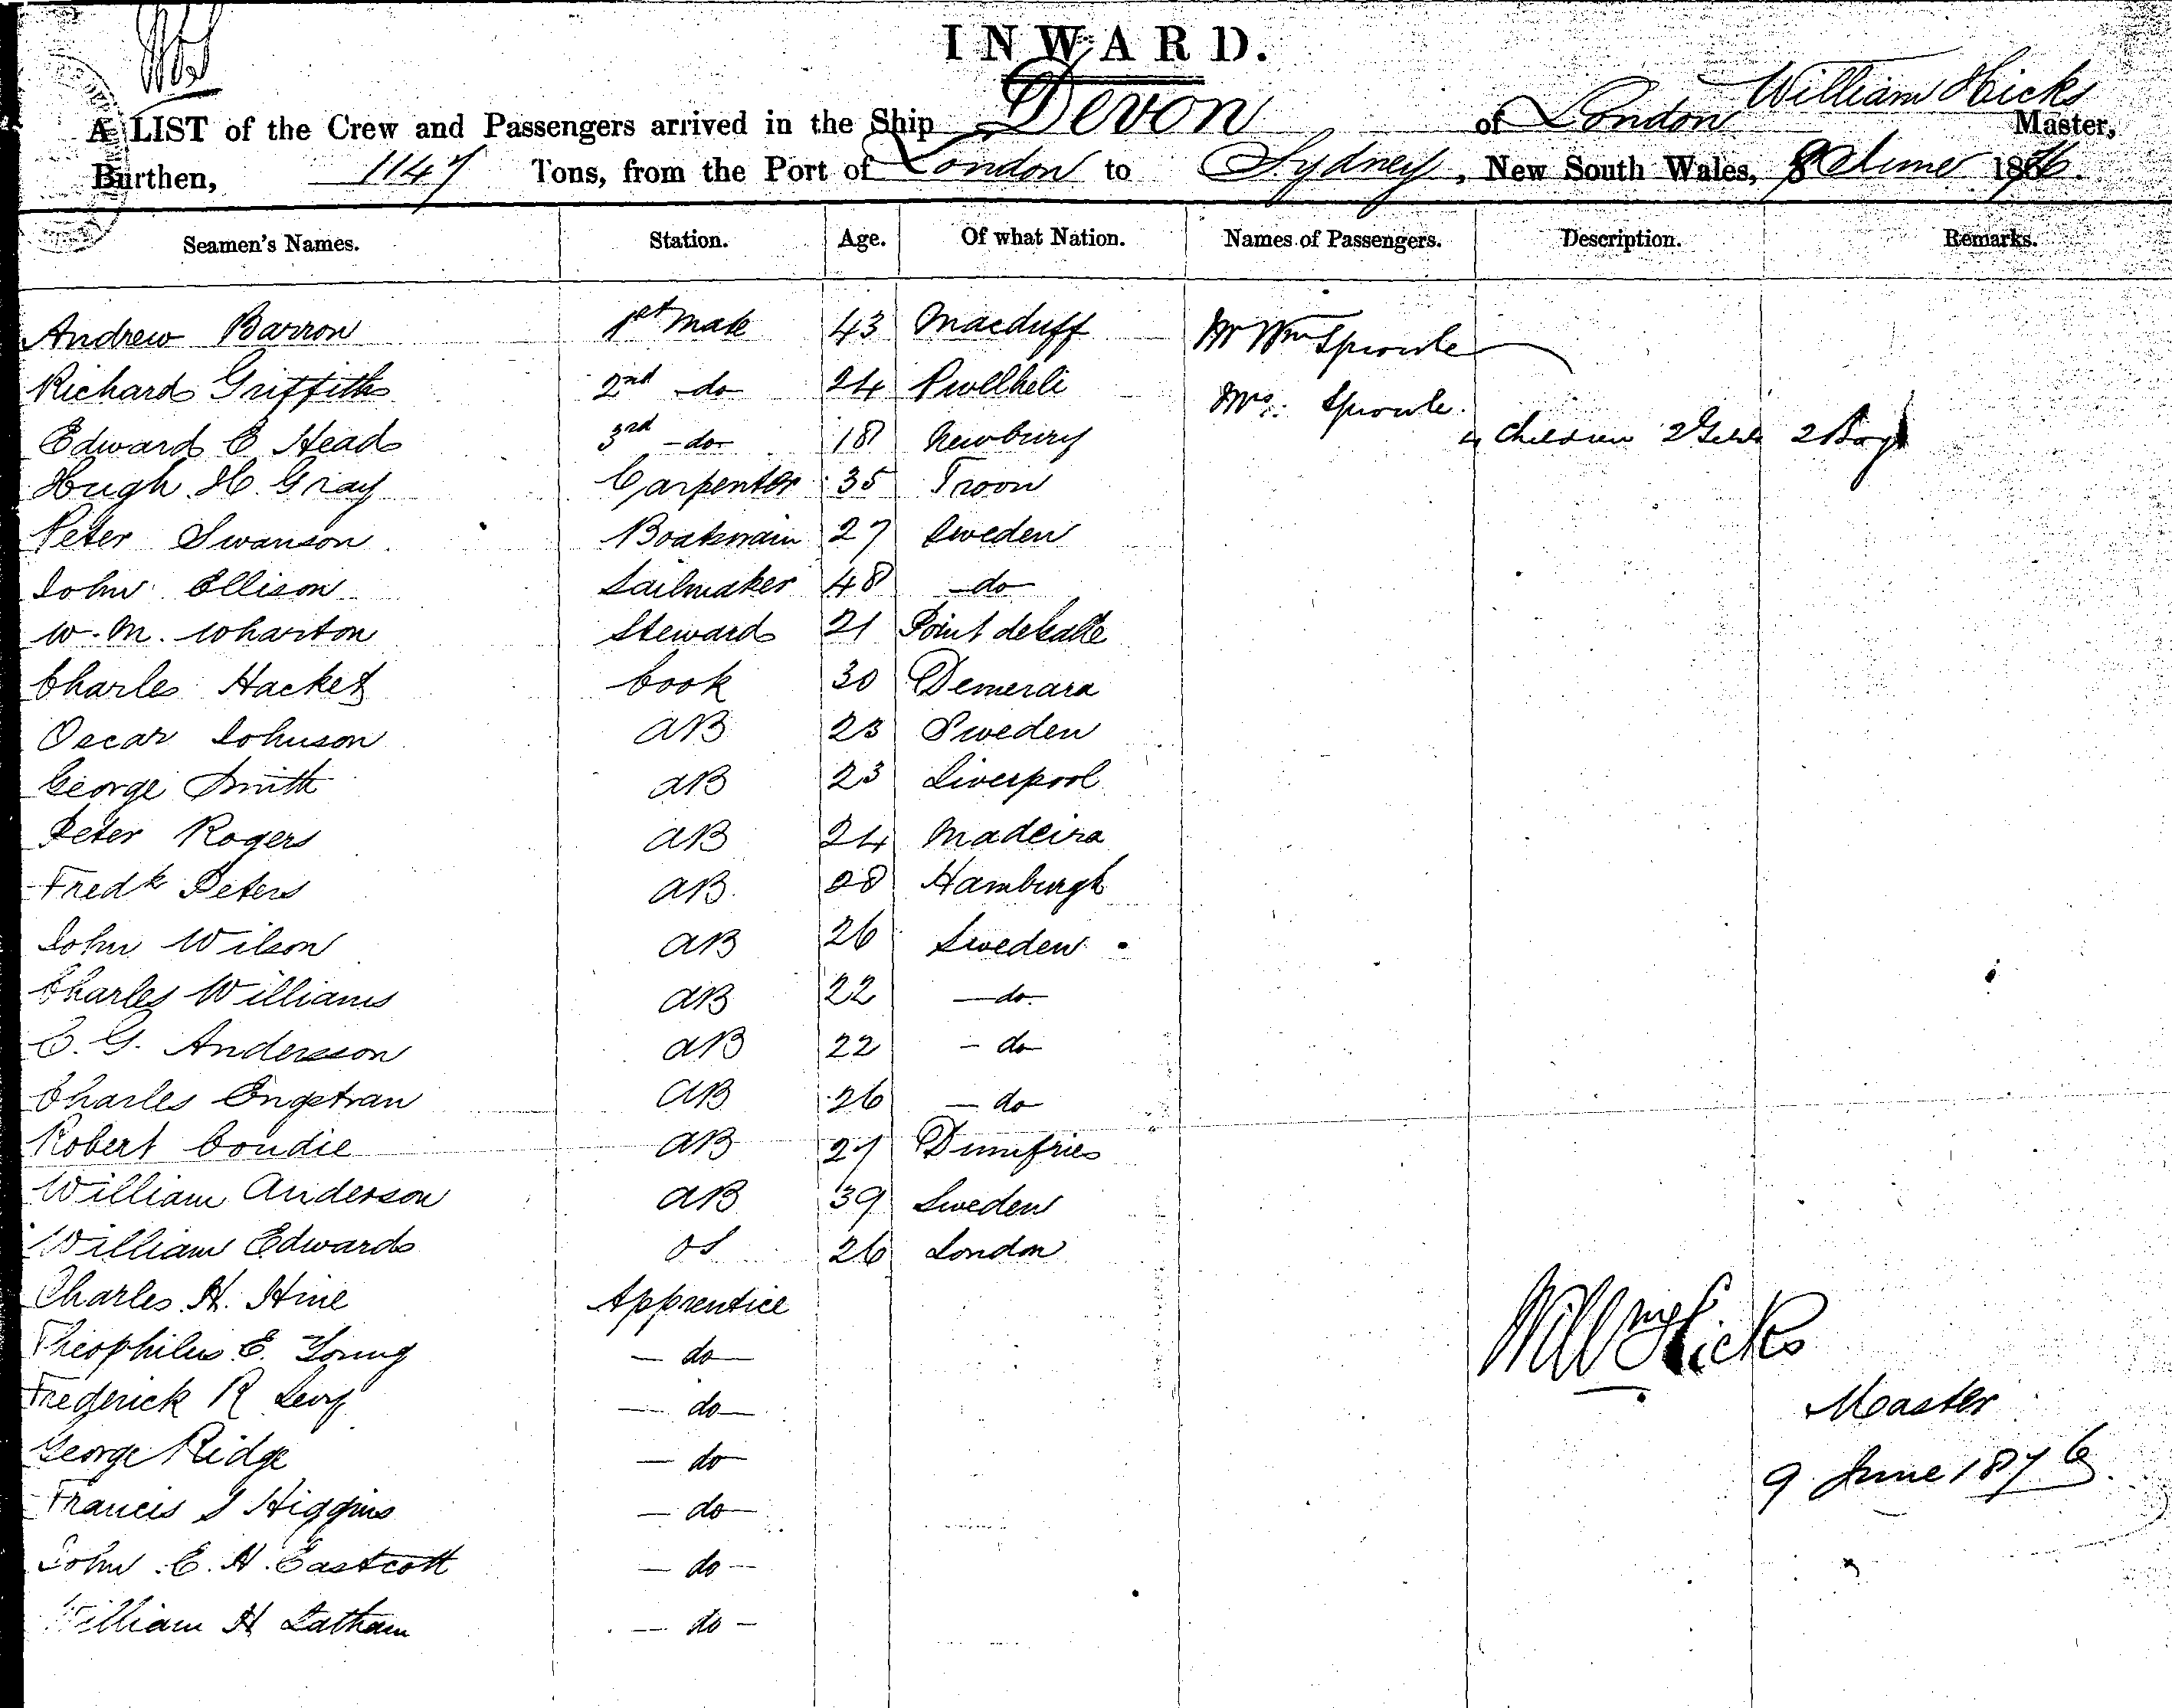 INWARD.
A LIST of the Crew and Passengers arrived in the Ship Devon of London William Hicks Master,
Burthen, 1147 Tons, from the Port of London to Sydney, New South Wales, 8 June 1876.
Seamen's Names. Station. Age. Of what Nation. Names of Passengers. Description. Remarks.
Andrew Barron 1st Mate 43 Macduff Mr Wm Sproule
Richard Griffiths 2nd do 24 Pwllheli Mrs. Sproule.
Edward E Head 3rd do 18 Newbury 4 Children 2 Girls 2 Boys
Hugh H. Gray Carpenter 35 Troon
Peter Swanson Boatswain 27 Sweden
John Ellison Sailmaker 48 do
W. M. Wharton Steward 21 Point de Galle
Charles Hacket Cook 30 Demerara
Oscar Johnson AB 23 Sweden
George Smith AB 23 Liverpool
Peter Rogers AB 24 Madeira
Fredk Peters AB. 28 Hamburgh
John Wilson AB 26 Sweden
Charles Williams AB 22 do
C. G. Andersson AB 22 do
Charles Engstran AB 26 do
Robert Coudie AB 27 Dumfries
William Anderson AB 39 Sweden
William Edwards OS 26 London
Charles H. Hine Apprentice
Theophilus E. Young do
Frederick R Levy do
George Ridge do
Francis S Higgins do
John E. H. Eastcott do
William H Latham do
Willm Hicks
Master
9 June 1876.